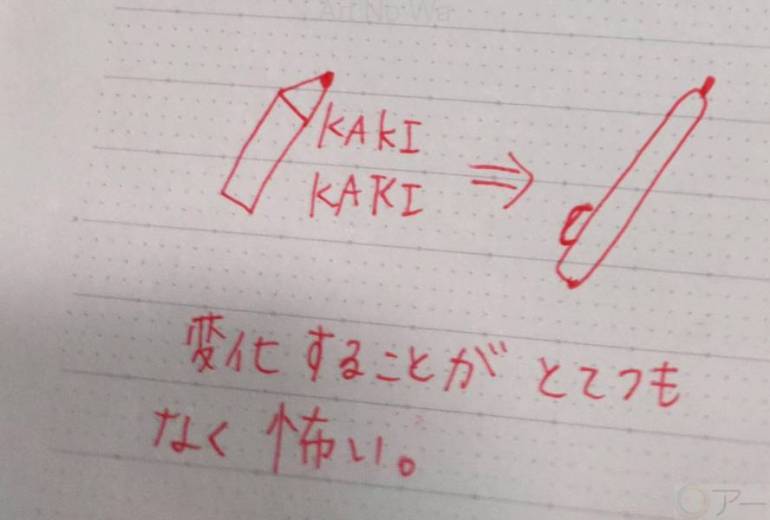 KAKI
KAKI
変化することがとてつも
なく怖い。